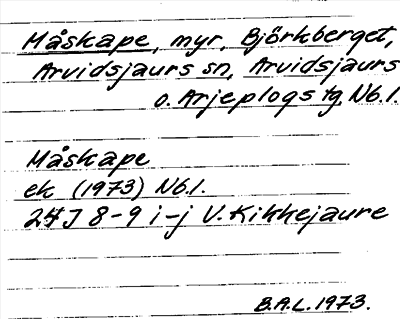 Måskape, myr, Björkberget,
Arvidsjaurs sn, Arvidsjaurs
o. Arjeplogs tg, Nb. l.
Måskape
ek (1973) Nb. l.
24J 8-9 i-j V. Kikkejaure
B.A.L. 1973.